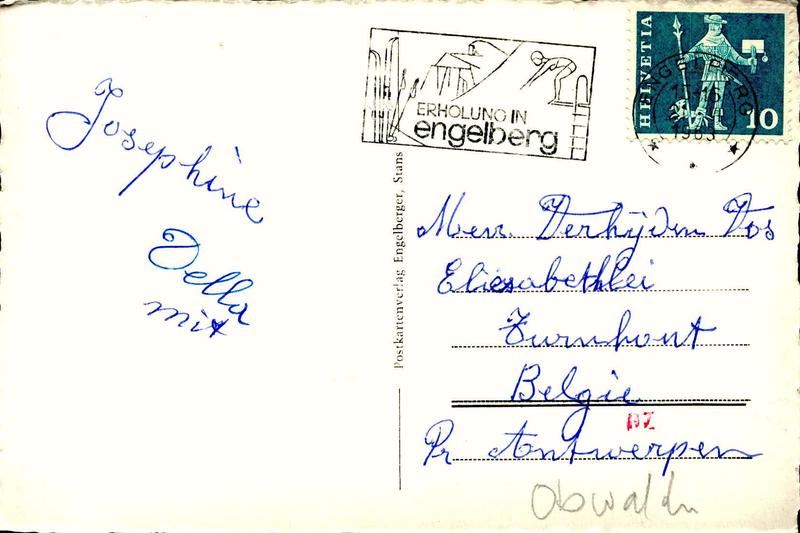 Josephine
Della
mit
ERHOLUNG IN
engelberg
HELVETIA
10
ENGELBERG
1963
Postkartenverlag Engelberger, Stans
Mevr. Verhijden Vos
Eliesabethlei
Turnhout
Belgie
Pr Antwerpen
Obwalden